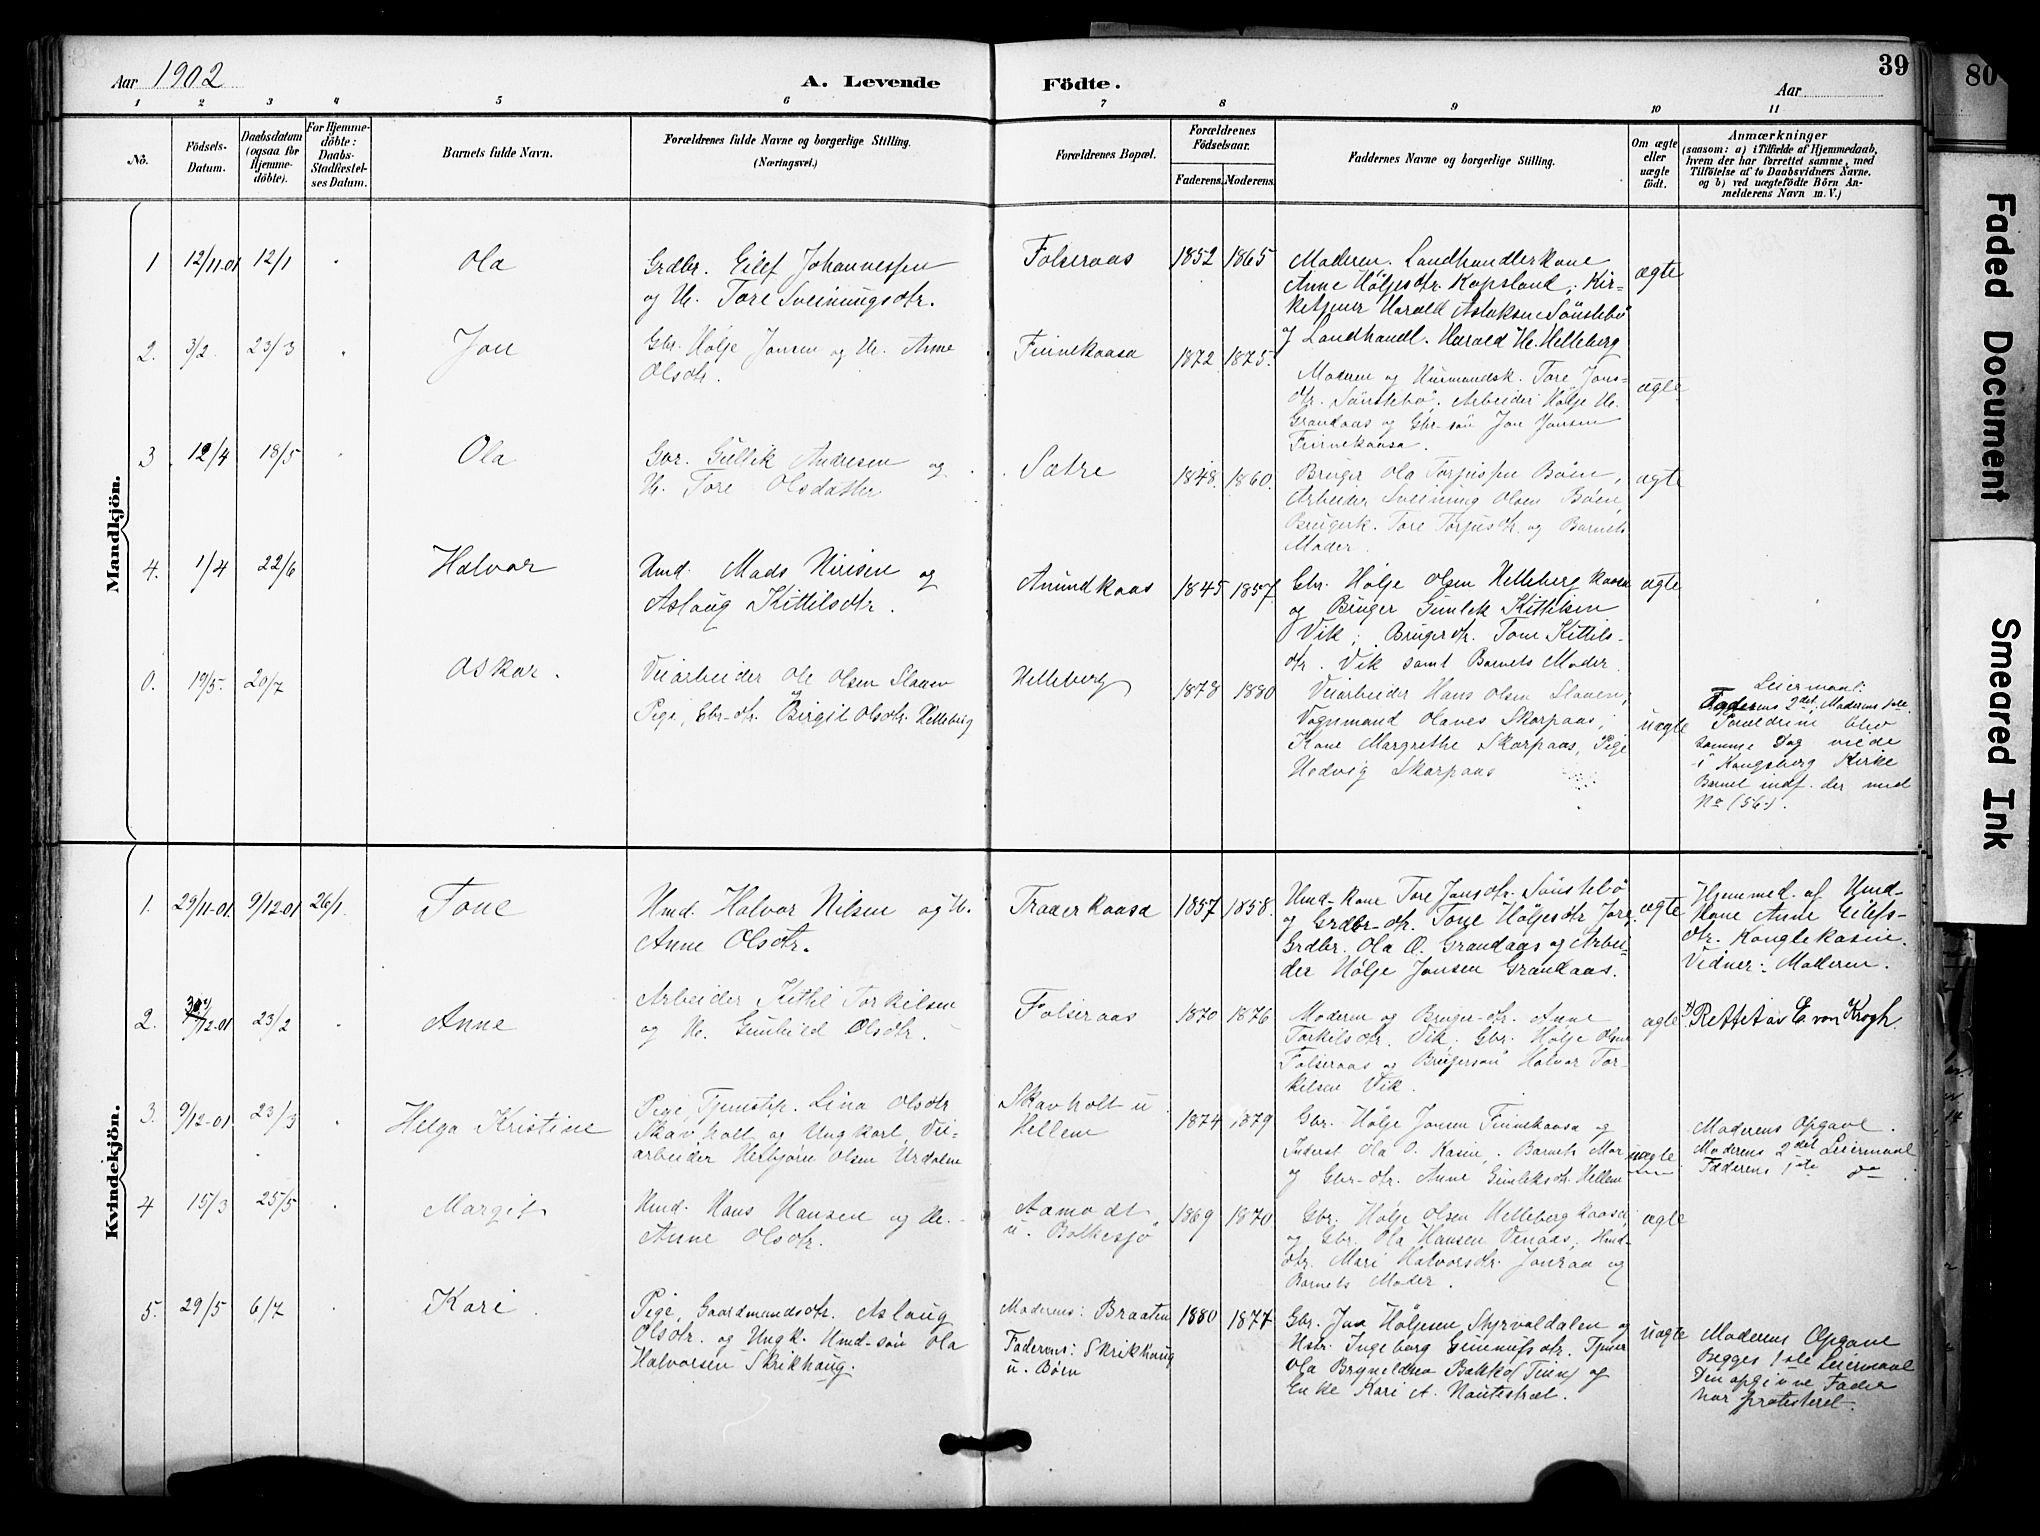 Aar 1902
A. Levende
Födte.
39
Aar
80
1 2 3 4 5 6 7 8 9 10 11
No.
Födsels-
Datum.
Daabsdatum
(ogsaa for
Hjemme-
döbte).
For Hjemme-
döbte:
Daabs-
Stadfæstel-
ses Datum.
Barnets fulde Navn.
Forældrenes fulde Navne og borgerlige Stilling.
(Næringsvei.)
Forældrenes Bopæl.
Forældrenes
Födselsaar.
Faderens. Moderens.
Faddernes Navne og borgerlige Stilling.
Om ægte
eller
uægte
födt.
Anmærkninger
(saasom: a) i Tilfælde af Hjemmedaab,
hvem der har forrettet samme, med
Tilföielse af to Daabsvidners Navne.
og b) ved uægtefödte Börn An-
melderens Navn m. V.)
Mandkjön.
1 12/11-01 12/1 " Ola
Grdbr. Eilef Johannessen
og H. Tore Sveinungsdtr.
Folseraas 1852 1865
Moderen. Landhandlerkone
Anne Höljesdtr. Kopsland; Kir-
ketjener Harald Aslaksen Sönstebö
og Landhandl. Harald H. Helleberg
ægte
2. 3/2. 23/3 " Jon
Gbr. Hölje Jonsen og H. Anne
Olsdtr.
Finnekaasa 1872 1875.
Moderen og Husmandsk. Tore Jons-
dtr. Sönstebö, Arbeider Hölje H.
Grandaas og Gbr-sön Jon Jonsen
Finnekaasa.
ægte
3. 12/4 18/5 " Ola
Gbr. Gullik Andresen og
H. Tore Olsdatter
Sætre 1848. 1860.
Bruger Ola Torjussen Böen,
Arbeider Sveinung Olsen Böen,
Brugerk. Tore Torjusdtr. og Barnets
Moder.
ægte
4. 1/4 22/6 Halvor
Hmd. Mads Nirisen og
Aslaug Kittilsdtr.
Anundkaas 1845 1857.
Gbr. Hölje Olsen Helleberg kaasa
og Bruger Gunlek Kittilsen
Vik; Brugerdtr. Tone Kittils-
dtr. Vik samt Barnets Moder.
ægte
0. 19/5. 20/7 Oskar.
Veiarbeider Ole Olsen Slaaen
og
Pige, Gbr-dtr. Birgit Olsdtr. Helleberg
Helleberg 1878 1880
Veiarbeider Hans Olsen Slaaen,
Vognmand Olaves Skarpaas;
Kone Margrethe Skarpaas, Pige
Hedvig Skarpaas
uægte
Leiermaal:
Faderens 2det, Moderens 1ste.
Foreldrene blev
samme Dag viede
i Kongsberg Kirke
Barnet indf. der med
No (56).
Kvindekjön.
1. 29/11-01. 9/12-01 26/1. Tone
Hmd. Halvor Nilsen og H.
Anne Olsdtr.
Traaerkaasa 1857 1858.
Hmd-kone Tore Jonsdtr. Sönstebö
og Grdbr-dtr. Tone Höljesdtr Jore,
Grdbr. Ola O. Grandaas og Arbei-
der Hölje Jonsen Grandaas.
ægte
Hjemmed. af Hmd-
kone Anne Eilefs-
dtr. Konglekasin.
Vidner: Moderen.
2. 30/12-01 23/2 " Anne
Arbeider Kittil Torkilsen
og H. Gunhild Olsdtr.
Folseraas 1870 1876
Moderen og Bruger-dtr. Anne
Torkilsdtr. Vik, Gbr. Hölje Olsen
Folseraas og Brugersön Halvor Tor-
kilsen Vik.
ægte
x) Rettet av E. von Krogh
3. 9/12-01 23/3 " Helga Kristine
Pige, Tjenstp. Lina Olsdtr
Skavholt og Ungkarl, Vei-
arbeider Herbjörn Olsen Urdalne
Skavholt u.
Hellem 1874 1879
Gbr. Hölje Jonsen Finnekaasa og
Inderst Ola O. Kasin, Barnets Mor
og Gbr-dtr. Anne Gunleksdtr. Hellem
uægte
Moderens Opgave.
Moderens 2det Leiermaal
Faderens 1ste do
4 15/3 25/5 " Margit
Hmd. Hans Hansen og H.
Anne Olsdtr.
Aamodt
u. Bolkesjö 1869 1870
Gbr. Hölje Olsen Helleberg kaasa,
og Gbr. Ola Hansen Venaas, Hmd-
dtr. Mari Halvorsdtr. Jonraa og
Barnets Moder.
ægte
5. 29/5 6/7 " Kari.
Pige, Gaardmandsdtr. Aslaug
Olsdtr. og Ungk. Hmd-sön Ola
Halvorsen Skrikhaug.
Moderens: Braaten
Faderens: Skrikhaug
u. Börn
1880 1877
Gbr. Jon Höljesen Skjrvoldalen og
Hstr. Ingeborg Gunnufsdtr. Tjener
Ola Brynildsen Bakke (Tinn) og
Enke Kari A. Nautestræt.
uægte
Moderens Opgave
Begges 1ste Leiermaal
Den opgivne Fader
har protesteret.
Faded Document
Smeared Ink